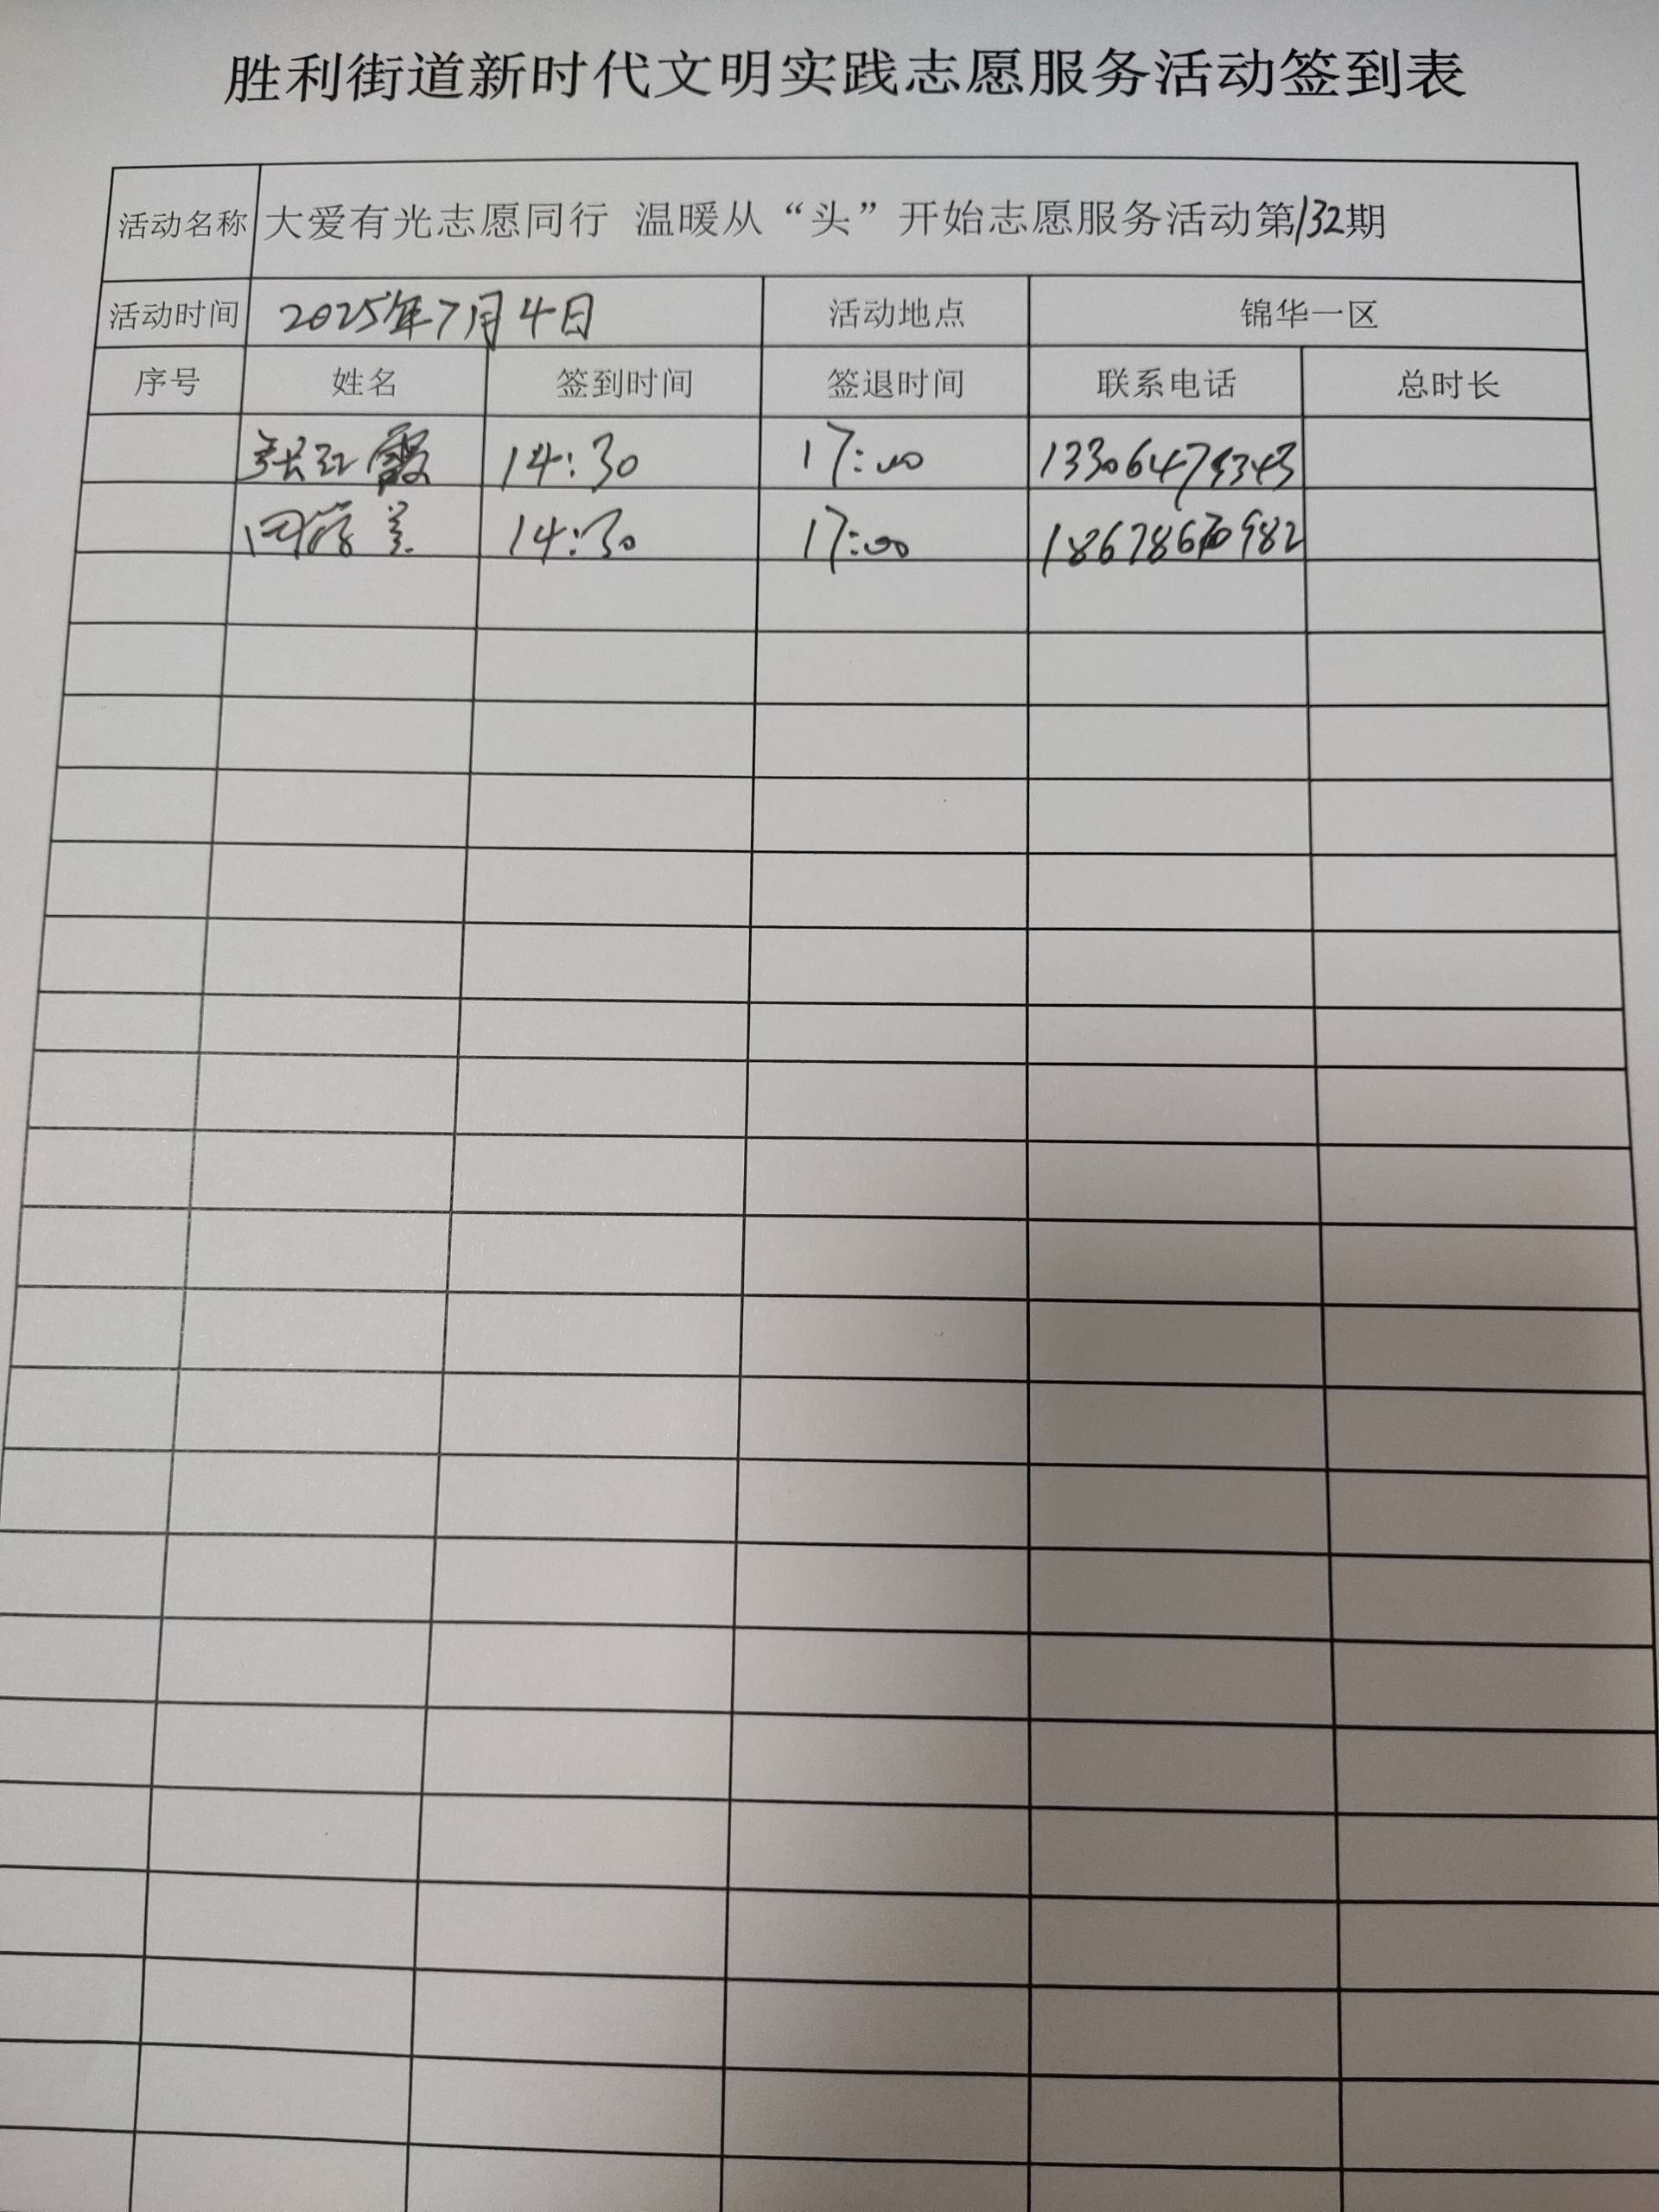 胜利街道新时代文明实践志愿服务活动签到表
活动名称 大爱有光志愿同行 温暖从“头”开始志愿服务活动第132期
活动时间 2025年7月4日 活动地点 锦华一区
序号 姓名 签到时间 签退时间 联系电话 总时长
张红霞 14:30 17:00
14:30 17:00